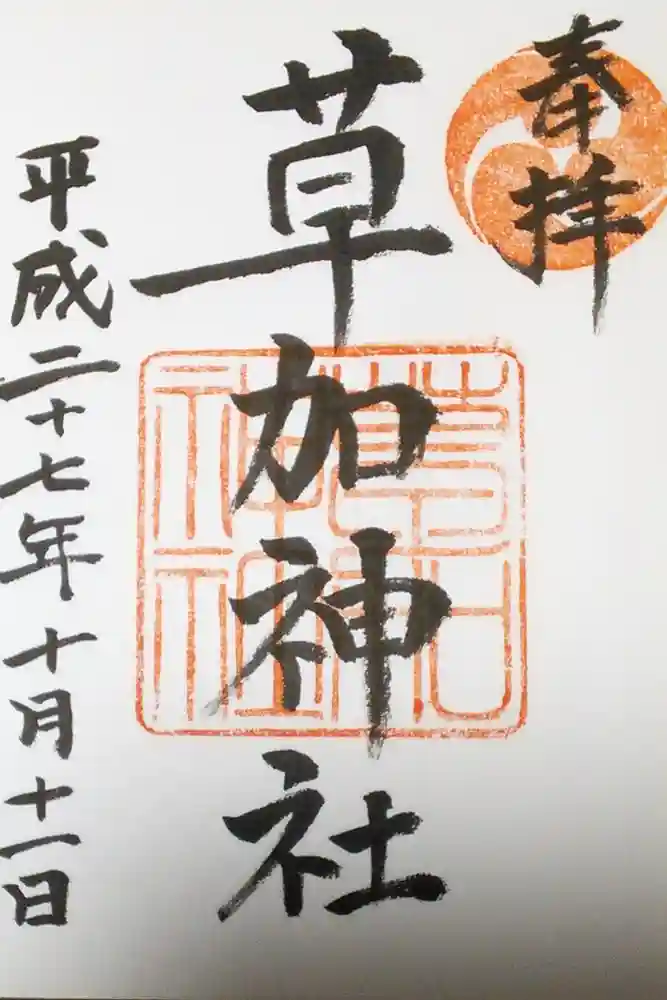 奉拝
草加神社
草加神社
平成二十七年十月十一日